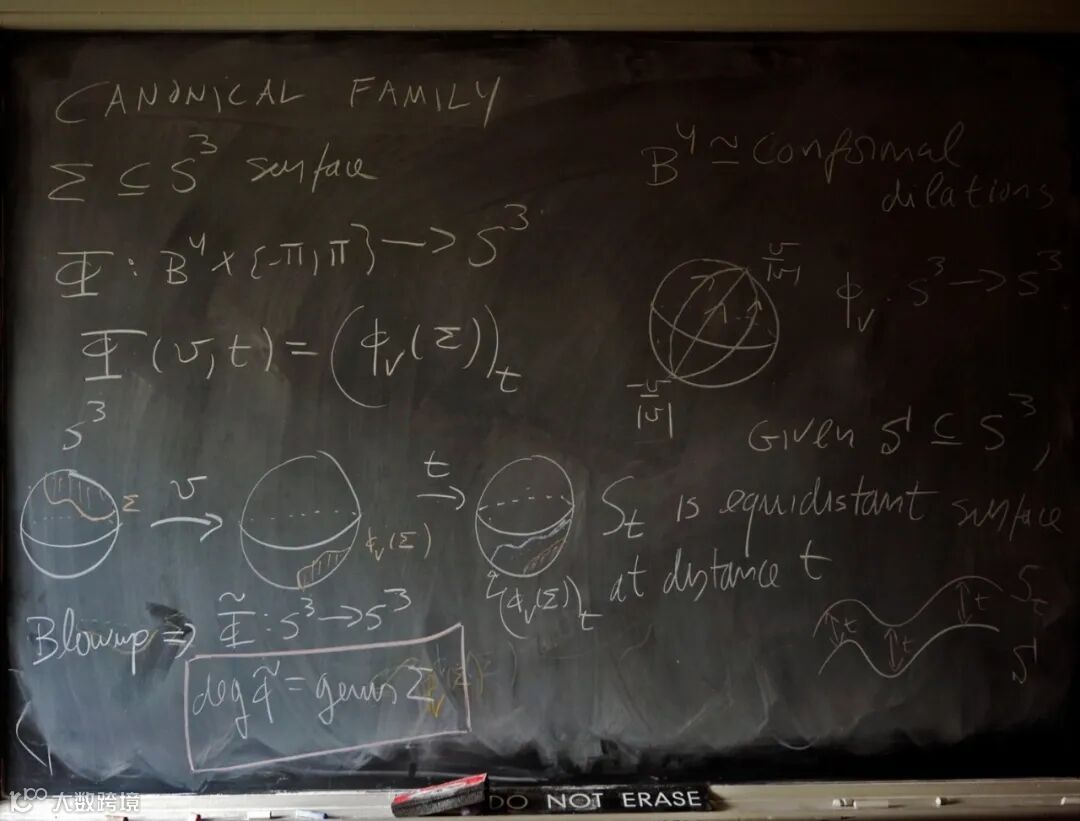 CANONICAL FAMILY
Σ ⊆ S³ surface
Φ : B⁴ × {-π, π} → S³
Φ (v, t) = (ϕᵥ(Σ))ₜ
B⁴ ≃ conformal
dilations
v/|v|
ϕᵥ : S³ → S³
-v/|v|
Given S ⊆ S³,
Sₜ is equidistant surface
at distance t
S³
Σ
v
ϕᵥ(Σ)
t
(ϕᵥ(Σ))ₜ
Sₜ
t
t
t
S
Blowup ⇒ Φ̃ : S³ → S³
deg Φ̃ = genus Σ
DO NOT ERASE
大数跨境